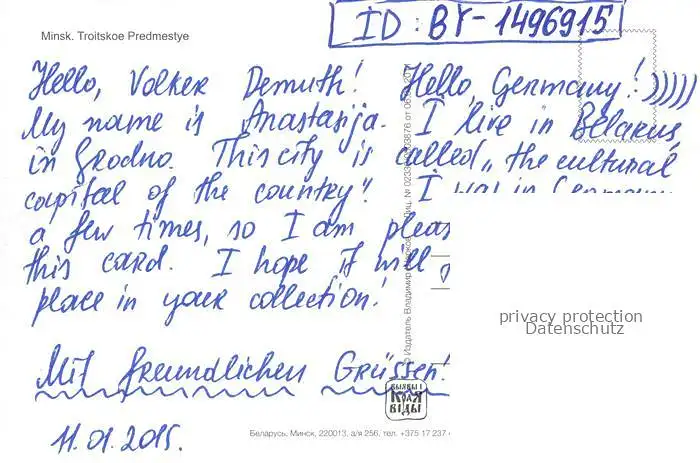 Minsk. Troitskoe Predmestye
ID: BY-1496915
Hello, Volker Demuth! Hello, Germany! :)))))
My name is Anastasija. I live in Belarus,
in Grodno. This city is called „the cultural
capital of the country". I was in Germany
a few times, so I am pleas
this card. I hope it will
place in your collection!
Mit freundlichen Grüssen!
11.01.2015.
privacy protection
Datenschutz
БЫЛЫЯ
КРАЯ
ВIДЫ
Беларусь, Минск, 220013, а/я 256, тел. +375 17 237
Издатель Владимир